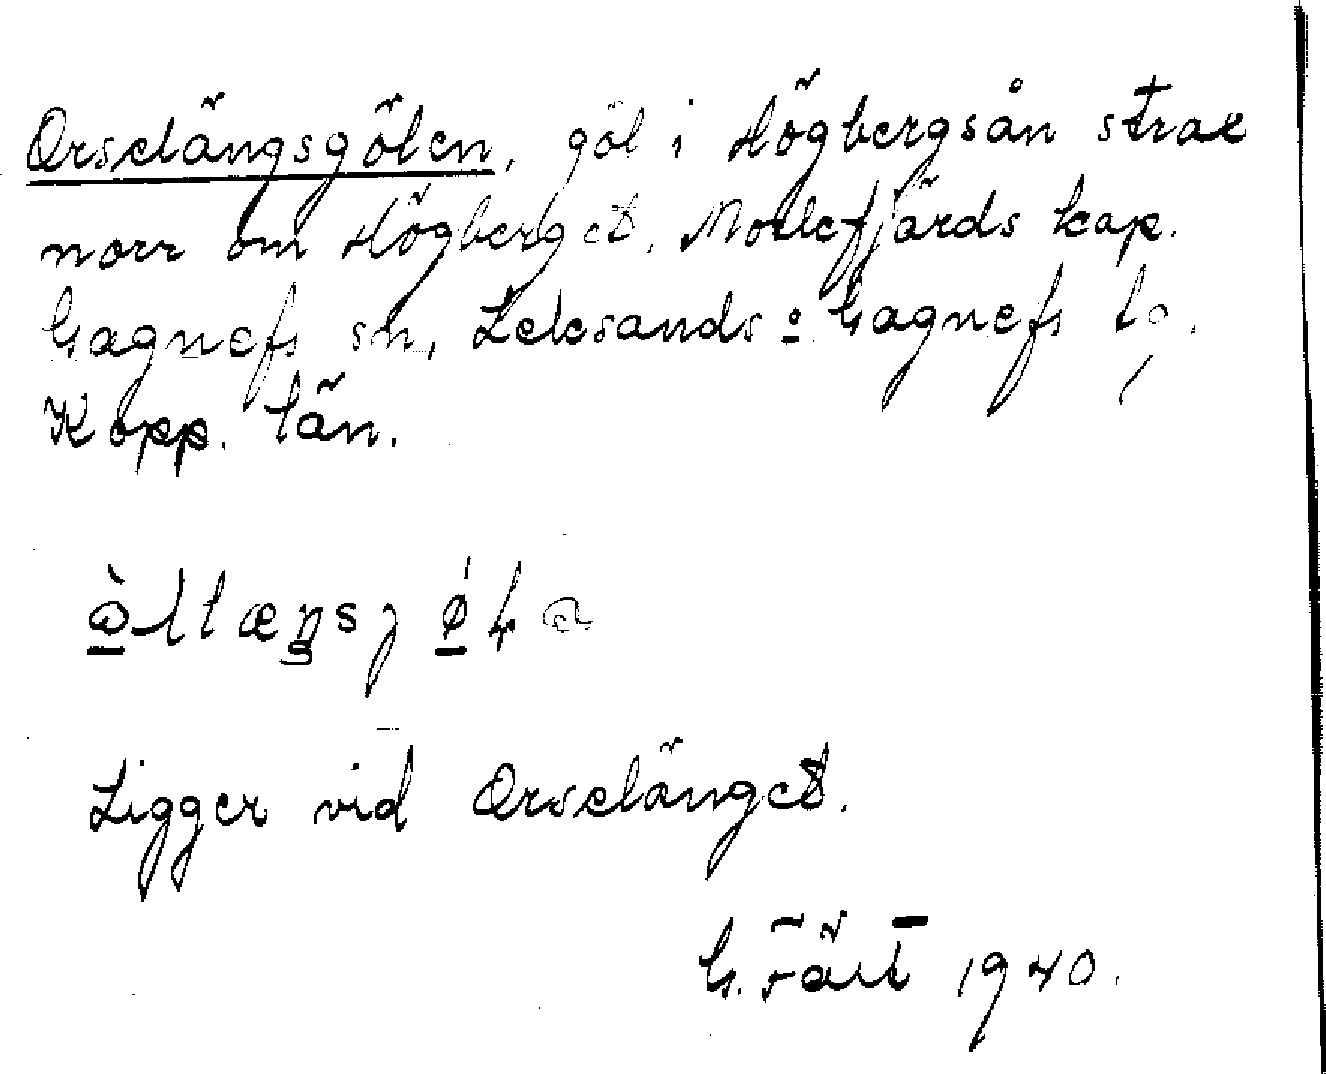 Orselängsgölen, göl i Högbergsån strax
norr om Högberget, Mockfjärds kap.
Gagnefs sn, Leksands o Gagnefs tg.
Kopp. län.
Ligger vid Orselänget.
G. Fält 1940.